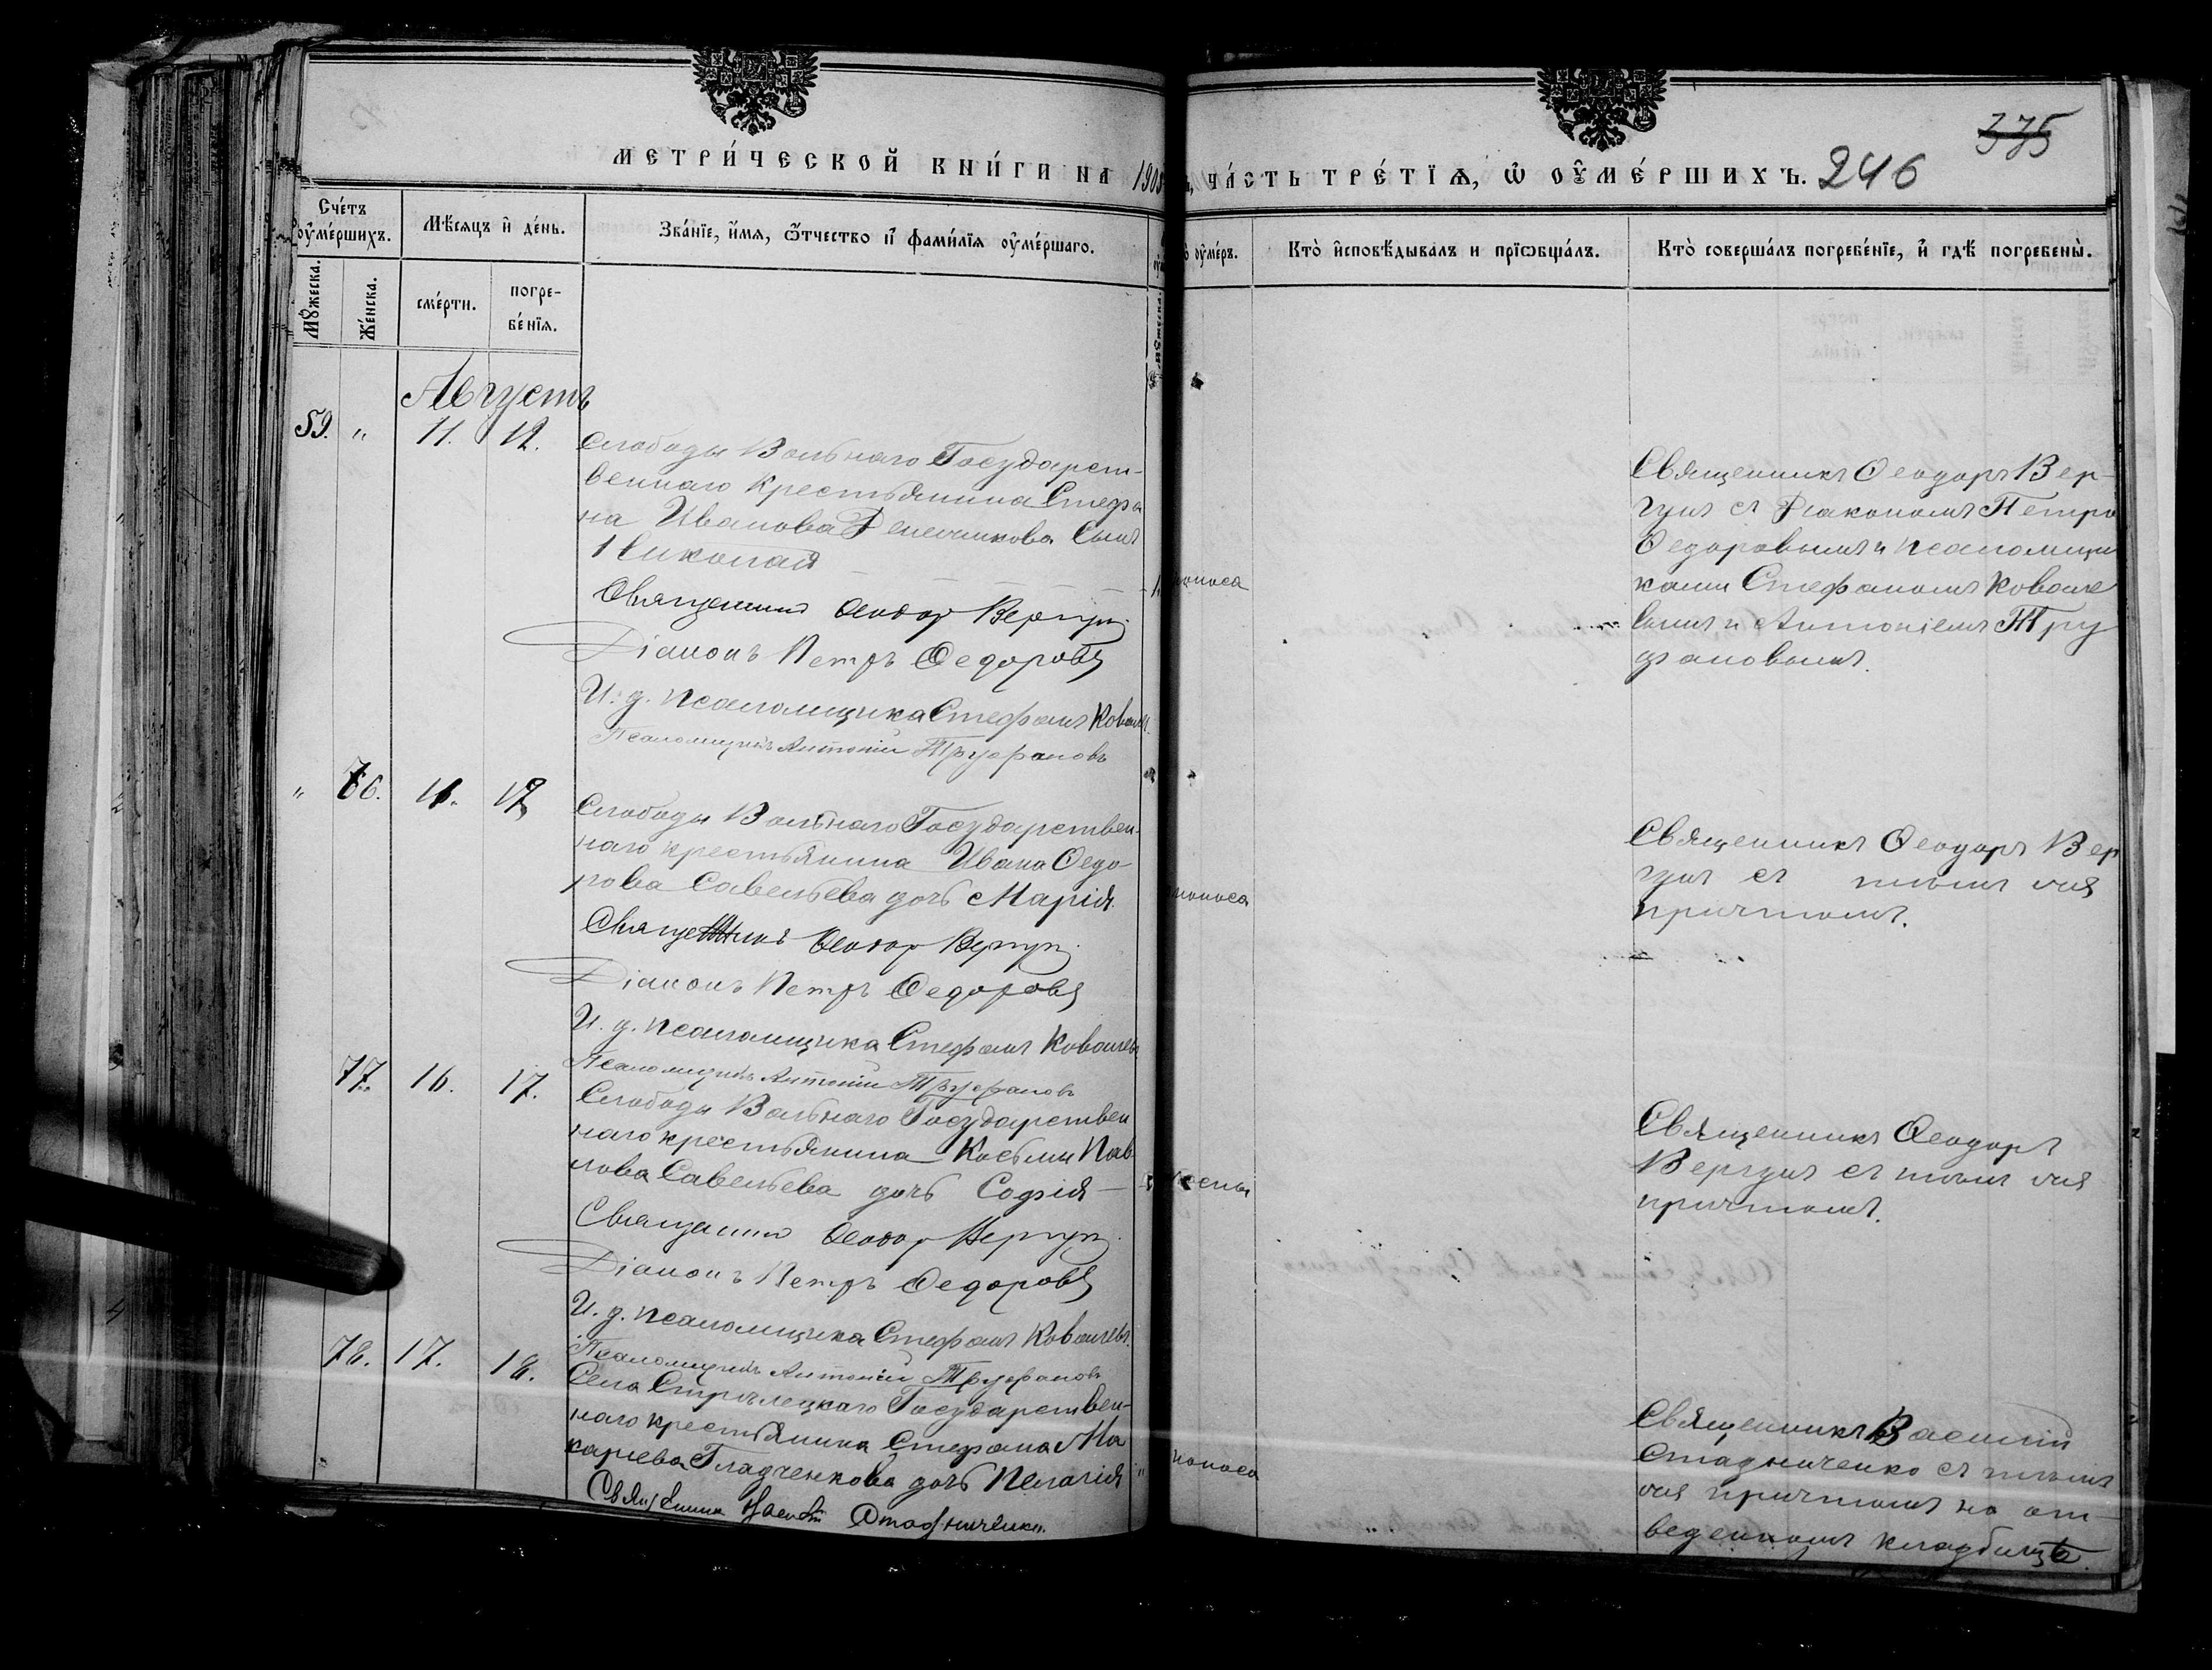 МЕТРИ́ЧЕСКОЙ КНИ́ГИ НА 190
ЧА́СТЬ ТРЕ́ТЇѦ, Ѿ ОУМЕ́РШИХЪ. 246
375
Сче́тъ оуме́ршихъ.
Мѣ́сяцъ и де́нь.
Зва́нїе, и́мя, ѿтчество и фами́лїя оуме́ршаго.
оуме́ръ.
Кто̀ исповѣ́дывалъ и прїѡбща́лъ.
Кто̀ соверша́лъ погребе́нїе, и гдѣ̀ погребены̀.
Мꙋ́жеска.
Же́нска.
сме́рти.
погре-
бе́нїя.
Августъ
59. " 11. 12.
Слободы Вольнаго Государст-
веннаго крестьянина Стефа
на Иванова сынъ
Николай
Священникъ Ѳеодоръ Вергунъ
Діаконъ Петръ Ѳедоровъ
И. д. псаломщика Стефанъ Ковалевъ
Псаломщикъ Антоній Труфановъ
поноса
Священникъ Ѳеодоръ Вер-
гунъ съ Діакономъ Петро
Ѳедоровымъ и псаломщи
ками Стефаномъ Ковале
вымъ и Антоніемъ Тру
фановымъ.
" 76. 11. 12
Слободы Вольнаго Государствен-
наго крестьянина Ивана Ѳедо
рова Савельева дочь Марія
Священникъ Ѳеодоръ Вергунъ
Діаконъ Петръ Ѳедоровъ
И. д. псаломщика Стефанъ Ковалевъ
Псаломщикъ Антоній Труфановъ
поноса
Священникъ Ѳеодоръ Вер
гунъ съ тѣмъ же
причтомъ.
77. 16. 17.
Слободы Вольнаго Государствен
наго крестьянина Косьмы Пав
лова Савельева дочь Софія
Священникъ Ѳеодоръ Вергунъ
Діаконъ Петръ Ѳедоровъ
И. д. псаломщика Стефанъ Ковалевъ
Псаломщикъ Антоній Труфановъ
Священникъ Ѳеодоръ
Вергунъ съ тѣмъ же
причтомъ.
78. 17. 18.
Села Стрѣлецкаго Государствен-
наго крестьянина Стефана Ма
карiева Гладченкова дочь Пелагія
Священникъ Василій Стадниченко.
поноса
Священникъ Василій
Стадниченко съ тѣмъ
же причтомъ на от-
веденномъ кладбищѣ.